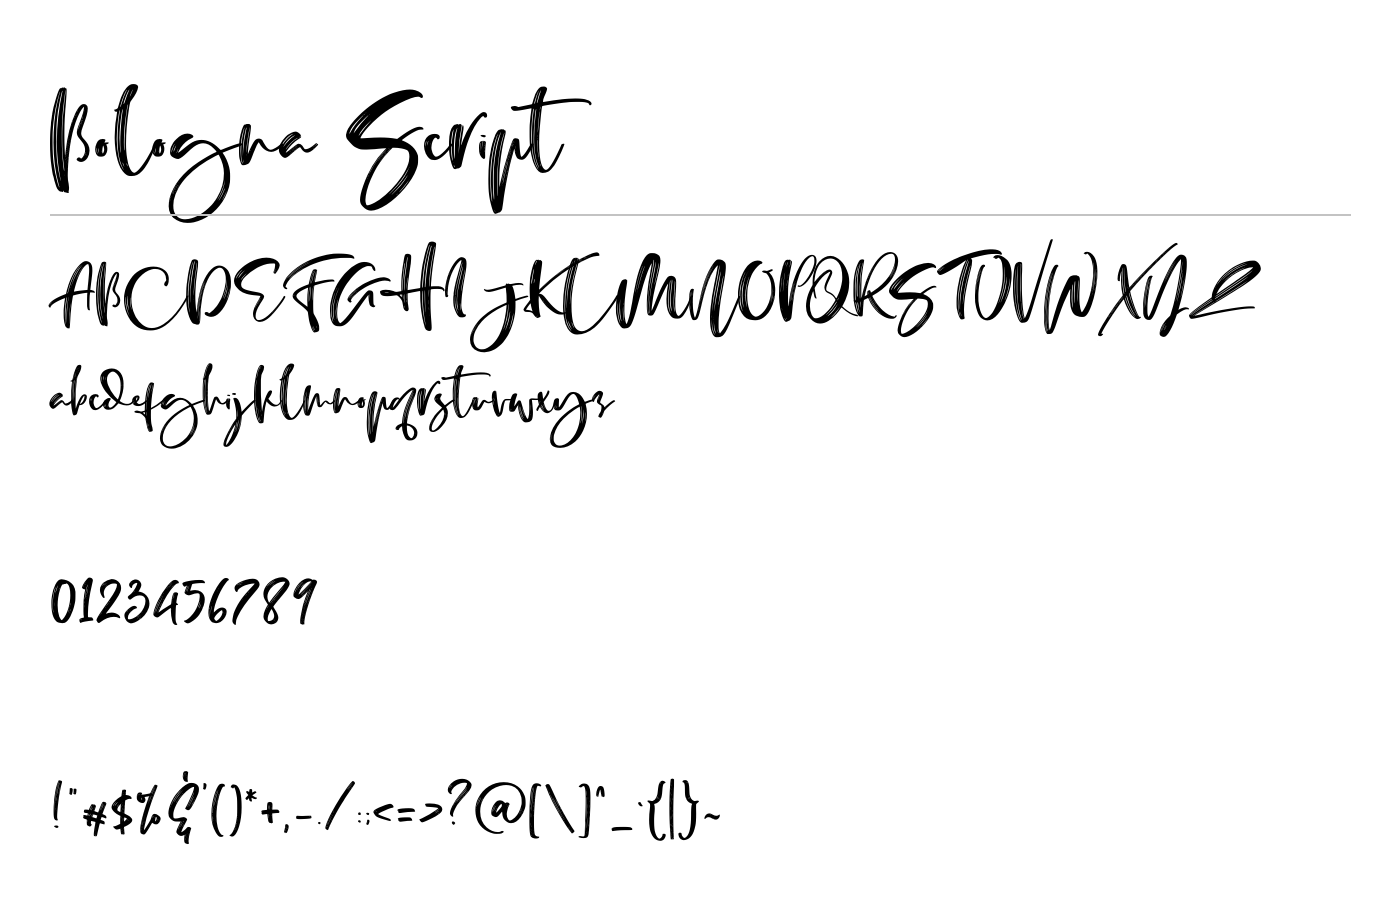 Bologna Script
ABCDEFGHIJKLMNOPQRSTUVWXYZ
abcdefghijklmnopqrstuvwxyz
0123456789
!"#$%&'()*+,-./:;<=>?@[\]^_`{|}~